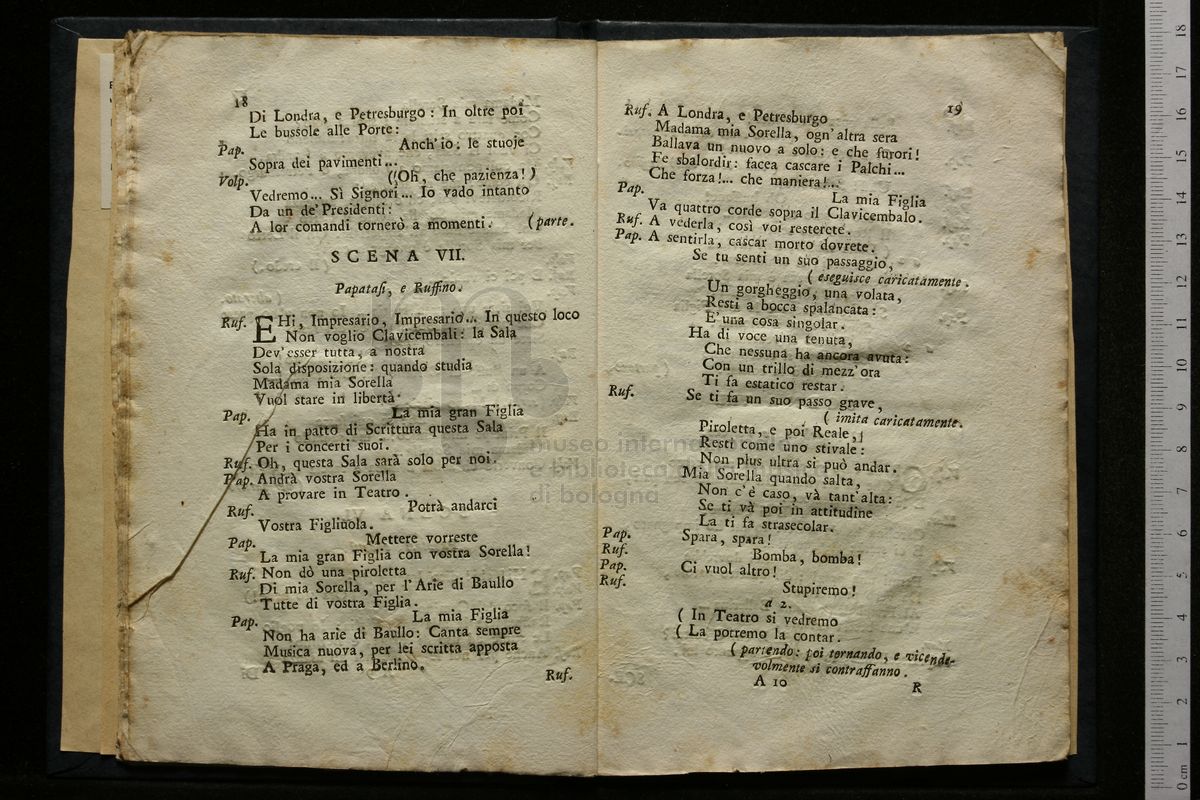 18
Di Londra, e Petresburgo: In oltre poi
Le bussole alle Porte:
Pap. Anch'io: le stuoje
Sopra dei pavimenti...
Volp. (Oh, che pazienza!)
Vedremo... Sì Signori... Io vado intanto
Da un de' Presidenti:
A lor comandi tornerò a momenti. (parte.
SCENA VII.
Papatasi, e Ruffino.
Ruf. EHi, Impresario, Impresario... In questo loco
Non voglio Clavicembali: la Sala
Dev'esser tutta, a nostra
Sola disposizione: quando studia
Madama mia Sorella
Vuol stare in libertà.
Pap. La mia gran Figlia
Ha in patto di Scrittura questa Sala
Per i concerti suoi.
Ruf. Oh, questa Sala sarà solo per noi.
Pap. Andrà vostra Sorella
A provare in Teatro.
Ruf. Potrà andarci
Vostra Figliuola.
Pap. Mettere vorreste
La mia gran Figlia con vostra Sorella!
Ruf. Non dò una piroletta
Di mia Sorella, per l'Arie di Baullo
Tutte di vostra Figlia.
Pap. La mia Figlia
Non ha arie di Baullo: Canta sempre
Musica nuova, per lei scritta apposta
A Praga, ed a Berlino.
Ruf.
19
Ruf. A Londra, e Petresburgo
Madama mia Sorella, ogn'altra sera
Ballava un nuovo a solo: e che furori!
Fe sbalordir: facea cascare i Palchi...
Che forza!... che maniera!...
Pap. La mia Figlia
Va quattro corde sopra il Clavicembalo.
Ruf. A vederla, così voi resterete.
Pap. A sentirla, cascar morto dovrete.
Se tu senti un suo passaggio,
(eseguisce caricatamente.
Un gorgheggio, una volata,
Resti a bocca spalancata:
E'una cosa singolar.
Ha di voce una tenuta,
Che nessuna ha ancora avuta:
Con un trillo di mezz'ora
Ti fa estatico restar.
Ruf. Se ti fa un suo passo grave,
(imita caricatamente.
Piroletta, e poi Reale,
Resti come uno stivale:
Non plus ultra si può andar.
Mia Sorella quando salta,
Non c'è caso, và tant'alta:
Se ti và poi in attitudine
La ti fa strasecolar.
Pap. Spara, spara!
Ruf. Bomba, bomba!
Pap. Ci vuol altro!
Ruf. Stupiremo!
a 2.
( In Teatro si vedremo
( La potremo la contar.
(partendo: poi tornando, e vicende-
volmente si contraffanno.
A 10 R
museo internazionale
e biblioteca della musica
di bologna